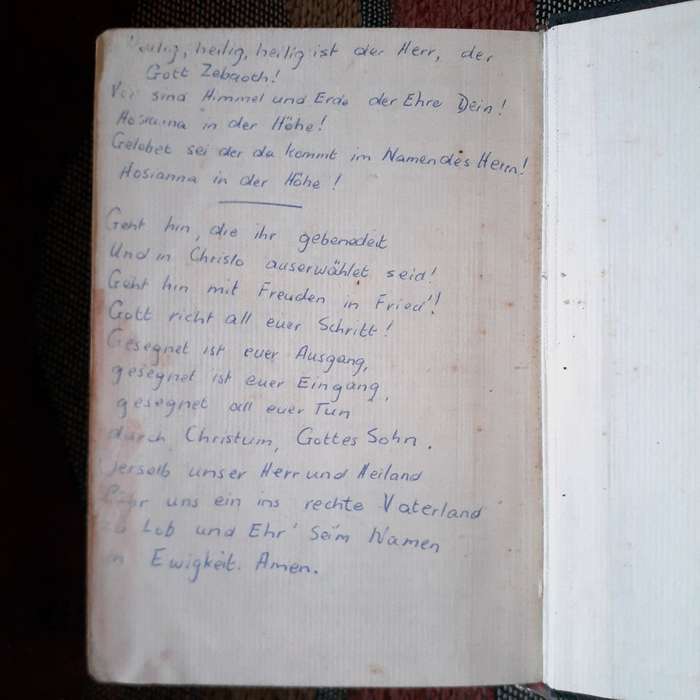 Heilig, heilig, heilig ist der Herr, der
Gott Zebaoth!
Voll sind Himmel und Erde der Ehre Dein!
Hosianna in der Höhe!
Gelobet sei der da kommt im Namen des Herrn!
Hosianna in der Höhe!
Geht hin, die ihr gebenedeit
Und in Christo auserwählet seid!
Geht hin mit Freuden in Fried'!
Gott richt all euer Schritt!
Gesegnet ist euer Ausgang,
gesegnet ist euer Eingang,
gesegnet all euer Tun
durch Christum, Gottes Sohn.
derselb unser Herr und Heiland
Führ uns ein ins rechte Vaterland
zu Lob und Ehr' Sei'm Namen
in Ewigkeit. Amen.